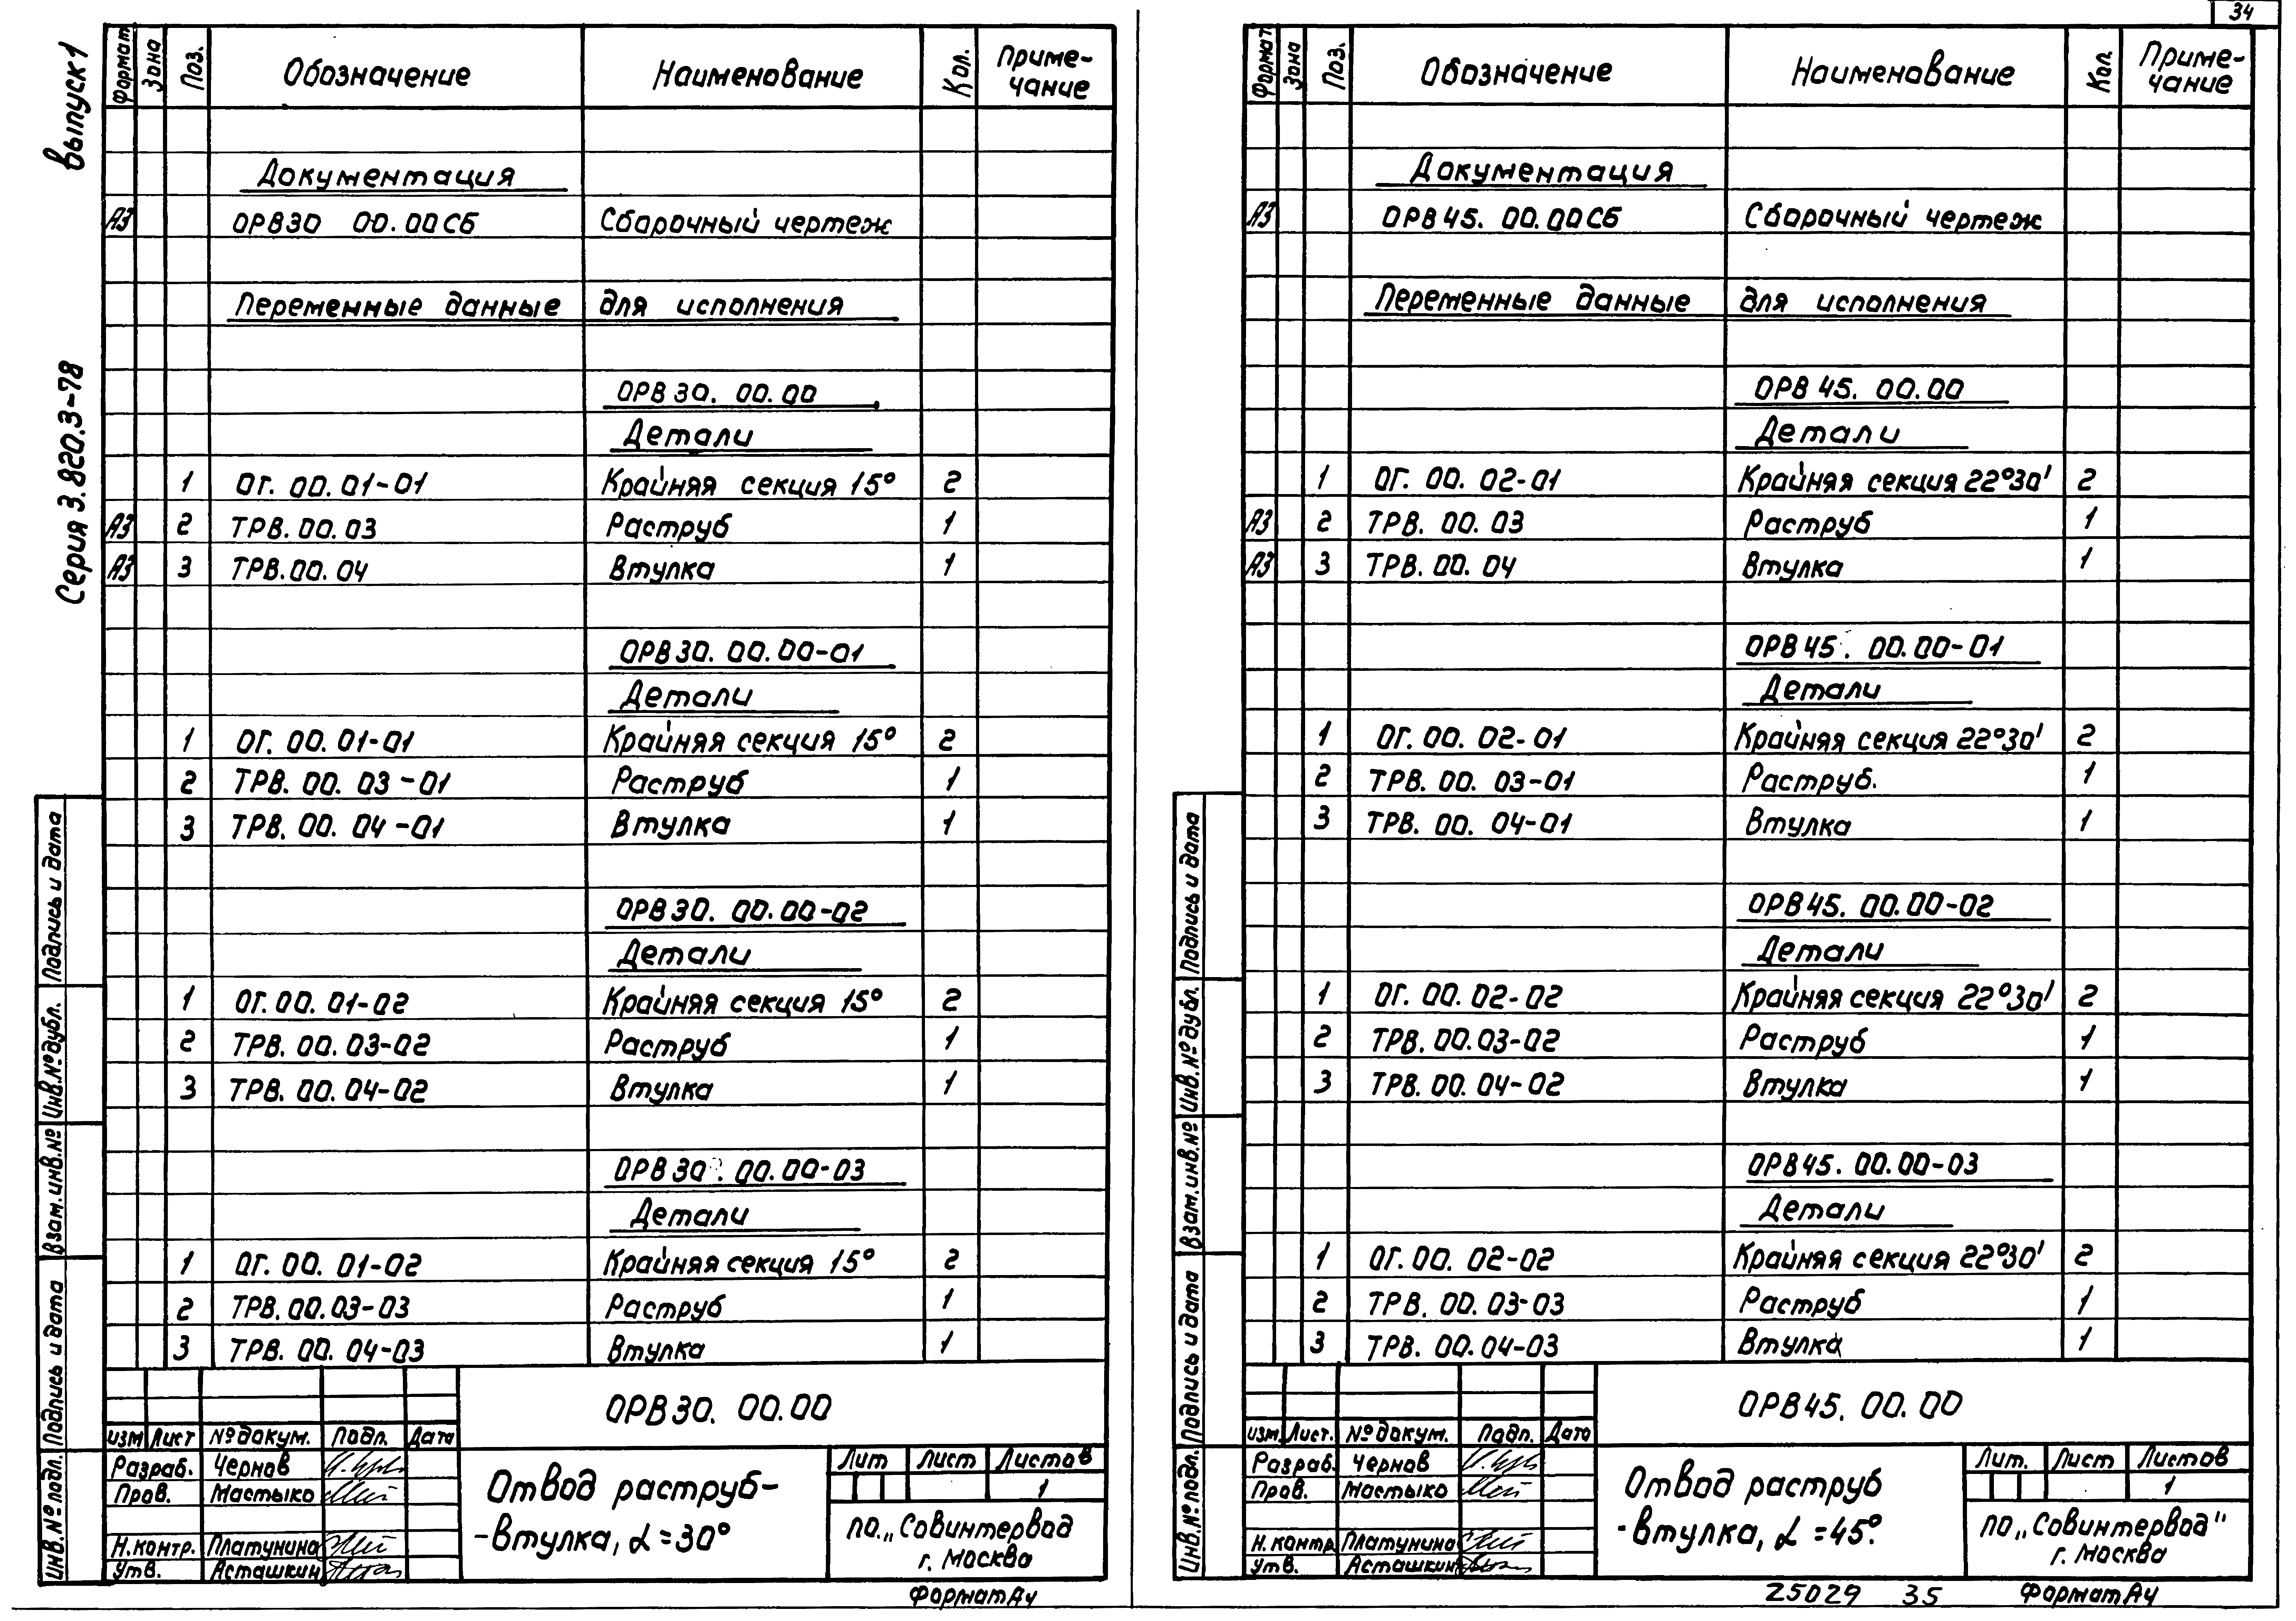 34
выпуск 1
Серия 3.820.3-78
Формат Зона Поз. Обозначение Наименование Кол. Приме-
чание
Документация
А3 ОРВ30 00.00СБ Сборочный чертеж
Переменные данные для исполнения
ОРВ30. 00.00
Детали
1 ОГ. 00. 01-01 Крайняя секция 15° 2
А3 2 ТРВ. 00. 03 Раструб 1
А3 3 ТРВ. 00. 04 Втулка 1
ОРВ30. 00.00-01
Детали
1 ОГ. 00. 01-01 Крайняя секция 15° 2
2 ТРВ. 00. 03-01 Раструб 1
3 ТРВ. 00. 04-01 Втулка 1
ОРВ30. 00.00-02
Детали
1 ОГ. 00. 01-02 Крайняя секция 15° 2
2 ТРВ. 00.03-02 Раструб 1
3 ТРВ. 00.04-02 Втулка 1
ОРВ30. 00.00-03
Детали
1 ОГ. 00. 01-02 Крайняя секция 15° 2
2 ТРВ. 00.03-03 Раструб 1
3 ТРВ. 00. 04-03 Втулка 1
Подпись и дата
Инв.№ дубл.
Взам.инв.№
Подпись и дата
Инв.№ подл.
ОРВ30. 00.00
изм Лист № докум. Подп. Дата
Разраб. Чернов
Пров. Мастыко
Н.контр. Платунина
Утв. Асташкин
Отвод раструб-
-втулка, α=30°
Лит Лист Листов
1
ПО „Совинтервод
г. Москва
Формат А4
Формат Зона Поз. Обозначение Наименование Кол. Приме-
чание
Документация
А3 ОРВ45. 00.00СБ Сборочный чертеж
Переменные данные для исполнения
ОРВ45. 00.00
Детали
1 ОГ. 00. 02-01 Крайняя секция 22°30' 2
А3 2 ТРВ. 00. 03 Раструб 1
А3 3 ТРВ. 00. 04 Втулка 1
ОРВ45. 00.00-01
Детали
1 ОГ. 00. 02-01 Крайняя секция 22°30' 2
2 ТРВ. 00. 03-01 Раструб. 1
3 ТРВ. 00. 04-01 Втулка 1
ОРВ45. 00.00-02
Детали
1 ОГ. 00. 02-02 Крайняя секция 22°30' 2
2 ТРВ. 00.03-02 Раструб 1
3 ТРВ. 00.04-02 Втулка 1
ОРВ45. 00.00-03
Детали
1 ОГ. 00. 02-02 Крайняя секция 22°30' 2
2 ТРВ. 00.03-03 Раструб 1
3 ТРВ. 00.04-03 Втулка 1
Подпись и дата
Инв.№ дубл.
Взам.инв.№
Подпись и дата
Инв.№ подл.
ОРВ45. 00.00
изм. Лист. № докум. Подп. Дата
Разраб. Чернов
Пров. Мастыко
Н. контр Платунина
Утв. Асташкин
Отвод раструб
-втулка, α=45°.
Лит. Лист Листов
1
ПО „Совинтервод"
г. Москва
25029 35 Формат А4